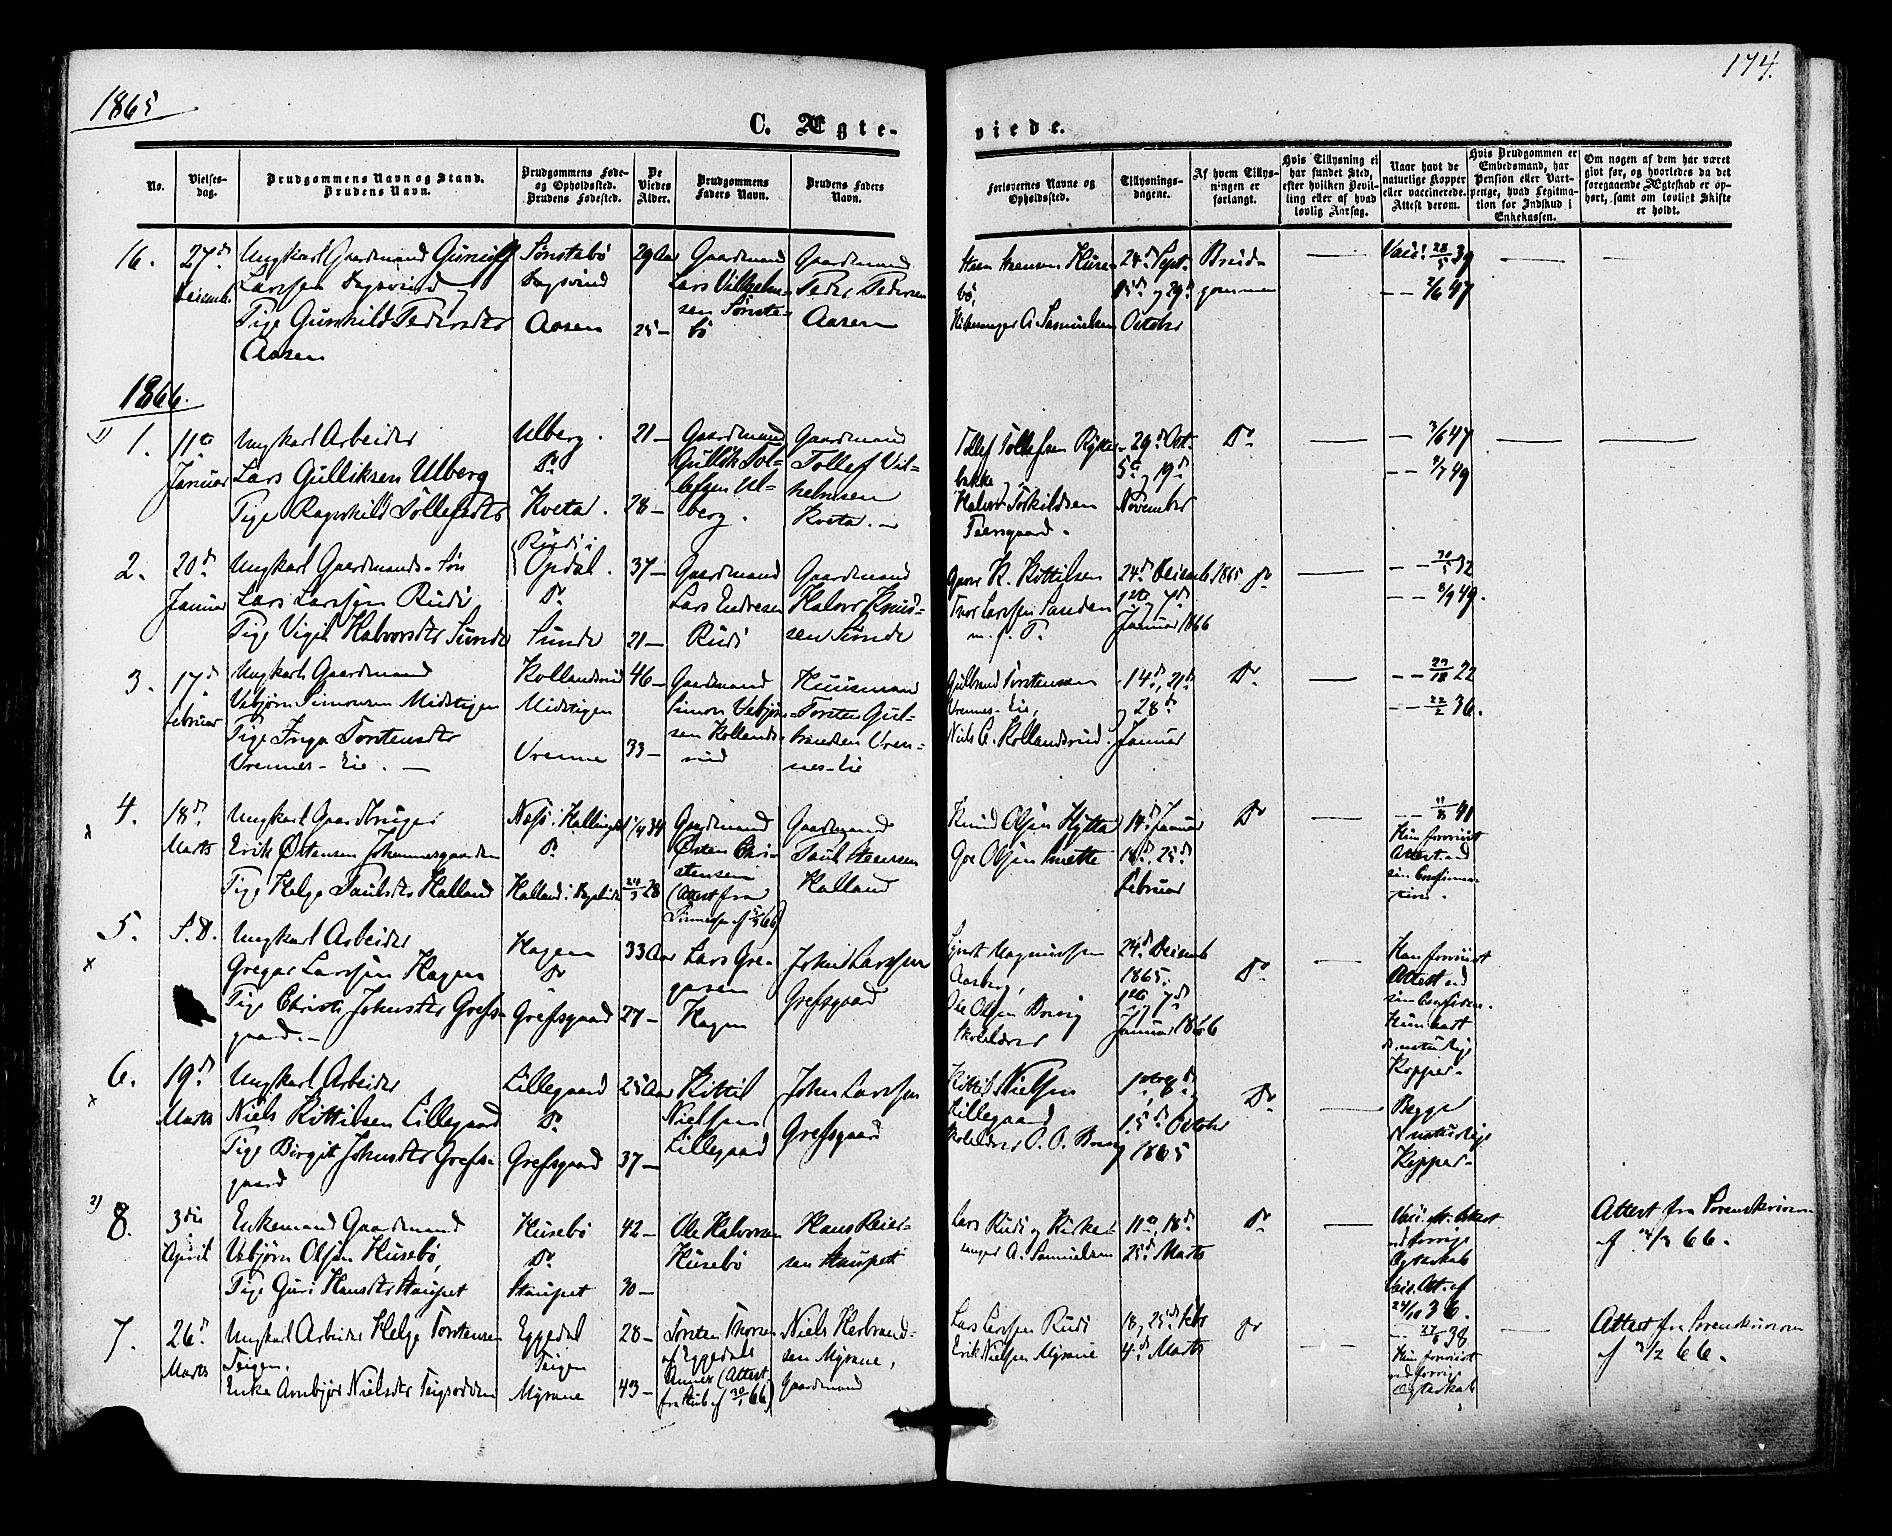 1865
174.
C. Ægte-
viede.
No.
Vielses-
dag.
Brudgommens Navn og Stand.
Brudens Navn.
Brudgommens Føde-
og Opholdssted.
Brudens Fødested.
De
Viedes
Alder.
Brudgommens
Faders Navn.
Brudens Faders
Navn.
Forlovernes Navne og
Opholdssted.
Tillysnings-
dagene.
Af hvem Tillys-
ningen er
forlangt.
Hvis Tillysning ei
har fundet Sted,
efter hvilken Bevil-
ling eller af hvad
lovlig Aarsag.
Naar havt de
naturlige Kopper
eller vaccinerede.
Attest derom.
Hvis Brudgommen er
Embedsmand, har
Pension eller Vart-
penge, hvad Legitma-
tion for Indskud i
Enkekassen.
Om nogen af dem har været
givt før, og hvorledes da det
foregaaende Ægteskab er op-
hørt, samt om lovligt Skifte
er holdt.
16.
27de
Decemb.
Ungkarl Gaardmand Gunulf
Larssen og
Pige Gunhild Pedersdtr
Aasen
Sønstebø
Aasen
29 Aar
25 —
Gaardmand
Lars Vilhelm-
sen Sønste-
bø
Gaardmand
Peder Pedersen
Aasen
Huse-
bø,
Kirkesanger A. Samuelsen
24de Sept.
15de og 29de
October
Brud-
gommen
Vacc. 28/5 39
— — 2/6 47
1866.
1.
11te
Januar
Ungkarl Arbeider
Lars Gulliksen Ulberg
Pige Ragnhild Tollefsdtr
Ulberg.
Do
Kveta.
21 —
28 —
Gaardmand
Gullik Tol-
lefsen Ul-
berg.
Gaardmand
Tollef Vil-
helmsen
Kveta. —
Tollef Tollefsen
bakke,
Halvor Torkildsen
29de Oct.
5te og 19de
November
Do
— 3/6 47
— — 2/7 49
2.
20de
Januar
Ungkarl Gaardmands-Søn
Lars Larssen Rudi
Pige Vigit Halvorsdtr Sunde
Rudi i
Opdal.
Do
Sunde
37 —
21 —
Gaardmand
Lars Endresen
Rudi
Gaardmand
Halvor Knud-
sen Sunde
K. Kittilsen
Larssen
24de Decemb. 1865
1ste og 7de
Januar 1866
Do
— — 30/5 32
— — 2/9 49.
3.
17de
Februar
Ungkarl Gaardmand
Vebjørn Simonsen Midstigen
Pige Inga Torstensdtr
Vrennes-Eie. —
Kollandsrud
Midstigen
Vrenne
46 —
33 —
Gaardmand
Simon Vebjørn-
sen Kollands-
rud
Huusmand
Torsten Gul-
brandsen Vren-
nes-Eie
Gulbrand Torstensen
Vrennes-Eie,
Niels C. Kollandsrud.
14de, 21de
og 28de
Januar
Do
— — 22
— — 22/2 36.
4.
18de
Marts
Ungkarl Gaardbruger
Erik Østensen Johannesgaarden
Pige Helge Paulsdtr Halland
Næs i Hallingd.
Do
Halland i
34
28
Gaardmand
Østen Chri-
stensen
(Attest fra
Gaardmand
Paul
Halland
Knud Olsen Hytta
Olsen
14de Januar
18de, 25de
Februar
Do
— — 41
Hun forevist
Attest ved
sin Confirma-
tion.
5.
S. D.
Ungkarl Arbeider
Gregar Larssen Hagen
Pige Christi Johnsdtr Grefs-
gaard. —
Hagen
Do
Grefsgaard
33 Aar
27 —
Lars Gre-
garsen
Hagen
John Larssen
Grefsgaard
Magnussen
Aasberg,
Ole Olsen Brevig
Skolelærer
24de Decemb.
1865.
1ste og 7de
Januar 1866
Do
Han forevist
Attest ved
sin Confirm.
Hun havt
d. naturlige
Kopper.
6.
19de
Marts
Ungkarl Arbeider
Niels Kittilsen Lillegaard
Pige Birgit Johnsdtr Grefs-
gaard
Lillegaard
Do
Grefsgaard
25 Aar
37 —
Kittil
Nielsen
Lillegaard
John Larssen
Grefsgaard
Kittil Nielsen
Lillegaard
Skolelærer O. O. Brevig
1ste, 8de
og 15de October
1865
Do
Begge
d. naturlige
Kopper.
8.
3die
April
Enkemand Gaardmand
Vebjørn Olsen Husebø,
Pige Guri Hansdtr Staupet
Husebø
Do
Staupet
42 —
30 —
Ole Halvorsen
Husebø
Hans Reier-
sen Staupet
Lars Rudi og Kirke-
sanger A. Samuelsen
11te, 18de
25de Marts
Do
Vacc. Attest
ved forrige
Ægteskab
Vacc. Att. af
24/10 36.
Attest fra Sorenskriveren
66.
7.
26de
Marts
Ungkarl Arbeider Helge Torstensen
Teigen.
Enke Ambjør Nielsdtr
Eggedal
Teigen
Myrane
28 —
43 —
Torsten
af Eggedals
Annex (Attest
66)
Niels Herbrand-
sen Myrane,
Gaardmand
Lars Larssen Rudi
Erik Nielsen Myrane
18, 25de Febr
4de Marts
Do
— 38
Hun forevist
ved forrige
Ægteskab
Attest fra Sorenskriveren
66.